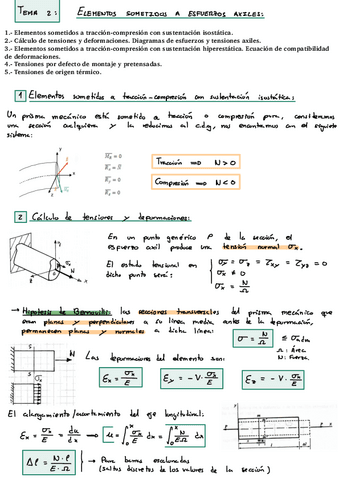 TEMA 2: ELEMENTOS SOMETIDOS A ESFUERZOS AXILES:
1.- Elementos sometidos a tracción-compresión con sustentación isostática.
2.- Cálculo de tensiones y deformaciones. Diagramas de esfuerzos y tensiones axiles.
3.- Elementos sometidos a tracción-compresión con sustentación hiperestática. Ecuación de compatibilidad
de deformaciones.
4.- Tensiones por defecto de montaje y pretensadas.
5.- Tensiones de origen térmico.
1 Elementos sometidos a tracción-compresión con sustentación isostática:
Un prisma mecánico está sometido a tracción o compresión pura, consideramos
una sección cualquiera y la reducimos al c.d.g, nos encontramos con el siguiente
sistema:
Tracción ⇒ N > 0
Compresión ⇒ N < 0
2 Cálculo de tensiones y deformaciones:
En un punto genérico P de la sección, el
esfuerzo axil produce una tensión normal σx.
El estado tensional en
dicho punto será:
σy = σz = τxy = τyz = 0
σx ≠ 0
σx = N/Ω
→ Hipótesis de Bernouilli: las secciones transversales del prisma mecánico que
eran planas y perpendiculares a su línea media antes de la deformación,
permanecen planas y normales a dicha línea:
σ = N/Ω ≤ σadm
Ω: Área
N: Fuerza.
Las deformaciones del elemento son:
εx = σx/E
εy = -ν·σx/E
εz = -ν·σx/E
El alargamiento/acortamiento del eje longitudinal:
εx = σx/E = du/dx → u = ∫₀ˣ σx/E dx = ∫₀ˣ N/EΩ dx
Δl = N·l/E·Ω → Para barras escalonadas
(saltos discretos de los valores de la sección)